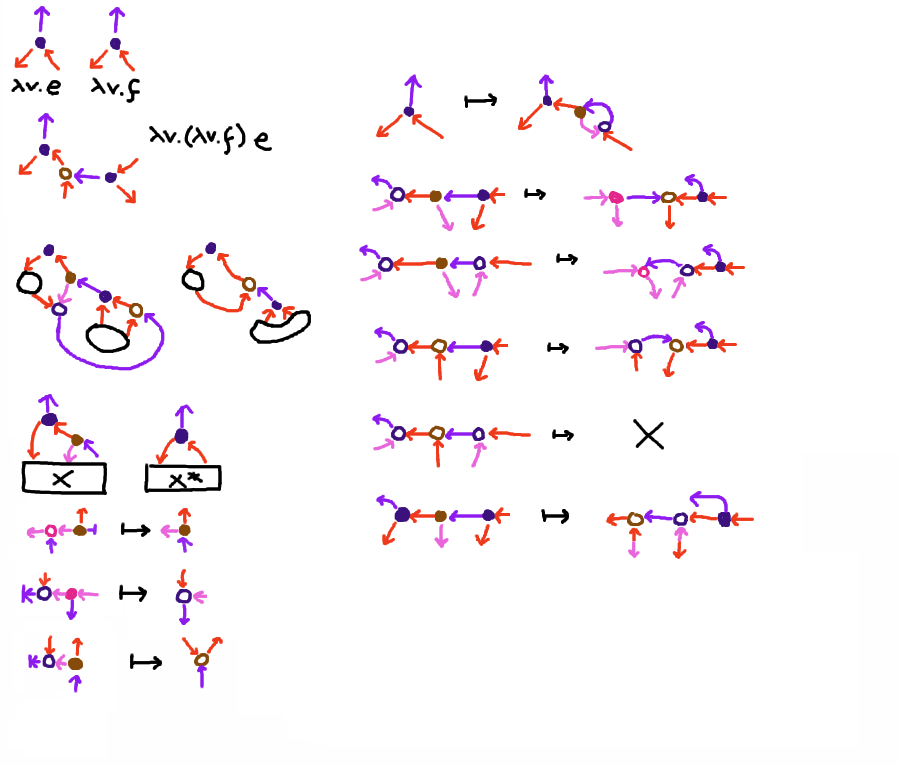 λv.e λv.f
λv.(λv.f) e
X X*